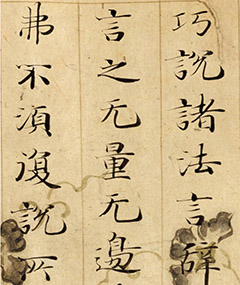 巧說諸法言辭
言之无量无邊
弗不須復說所